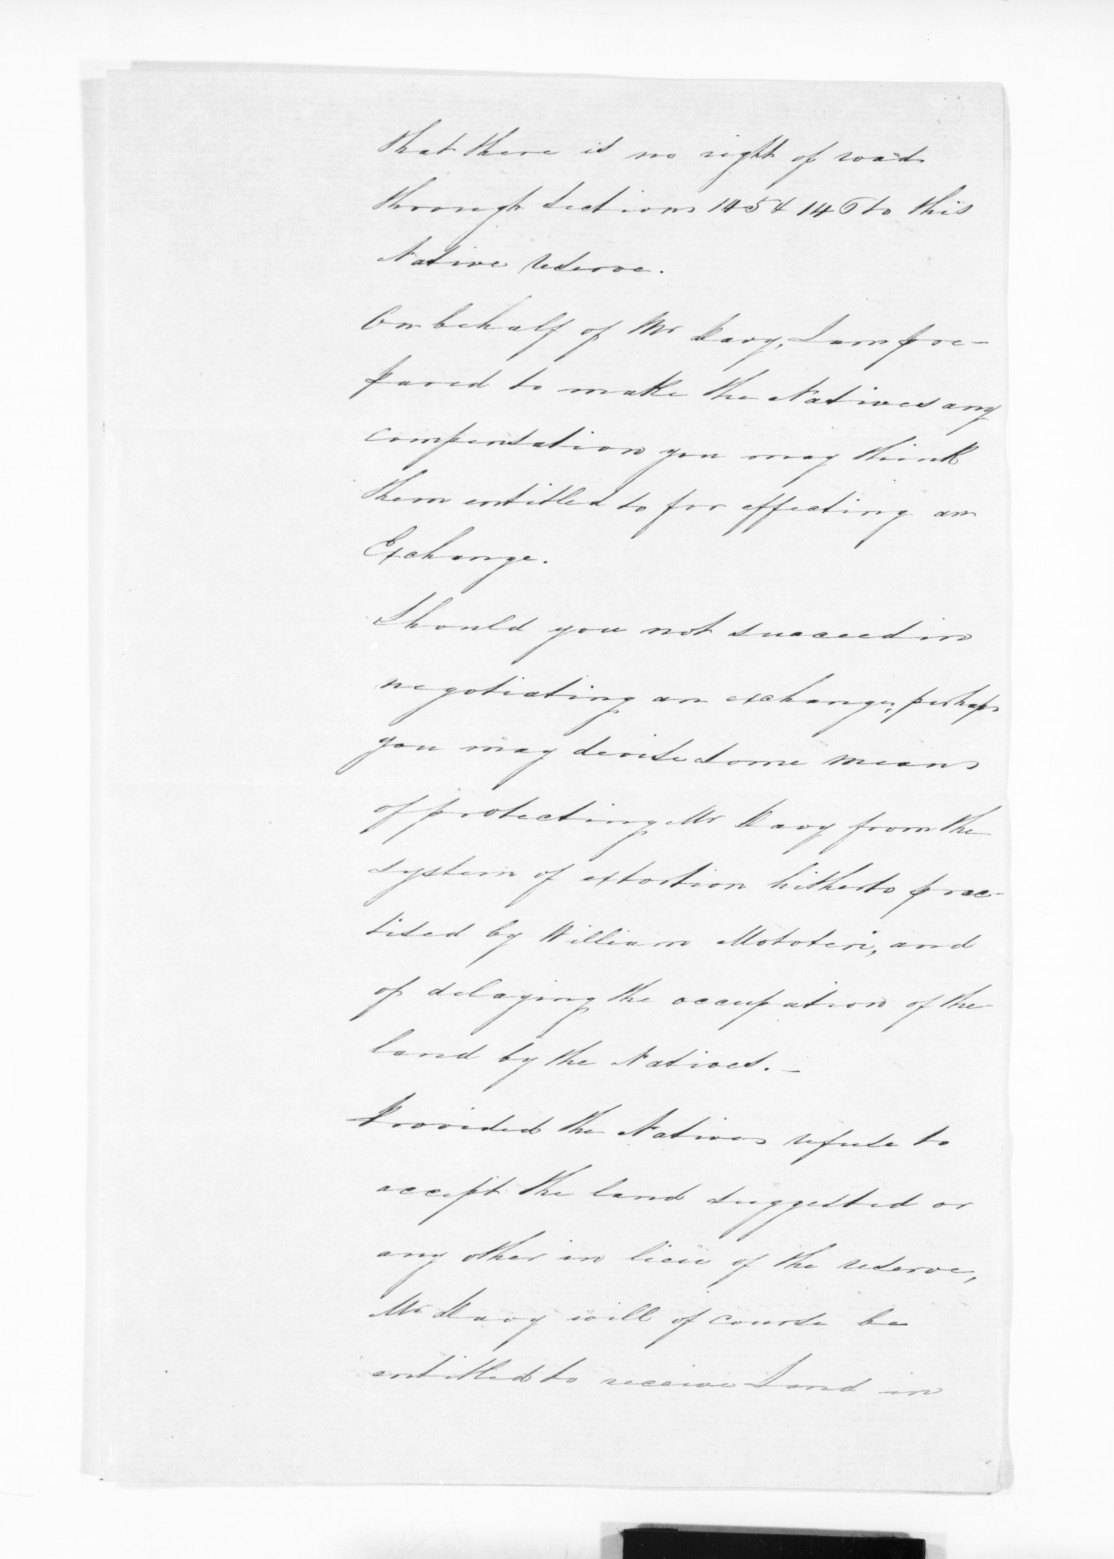 that there is no right of road
through Sections 145 & 146 to this
Native reserve.
On behalf of Mr Davy, I am pre-
pared to make the Natives any
compensation you may think
them entitled to for effecting an
Exchange.
Should you not succeed in
negotiating an exchange, perhaps
you may devise some means
of protecting Mr Davy from the
system of extortion hitherto prac-
tised by William and
of delaying the occupation of the
land by the Natives. _
Provided the Natives refuse to
accept the land suggested or
any other in lieu of the reserve,
Mr Davy will of course be
entitled to receive Land in